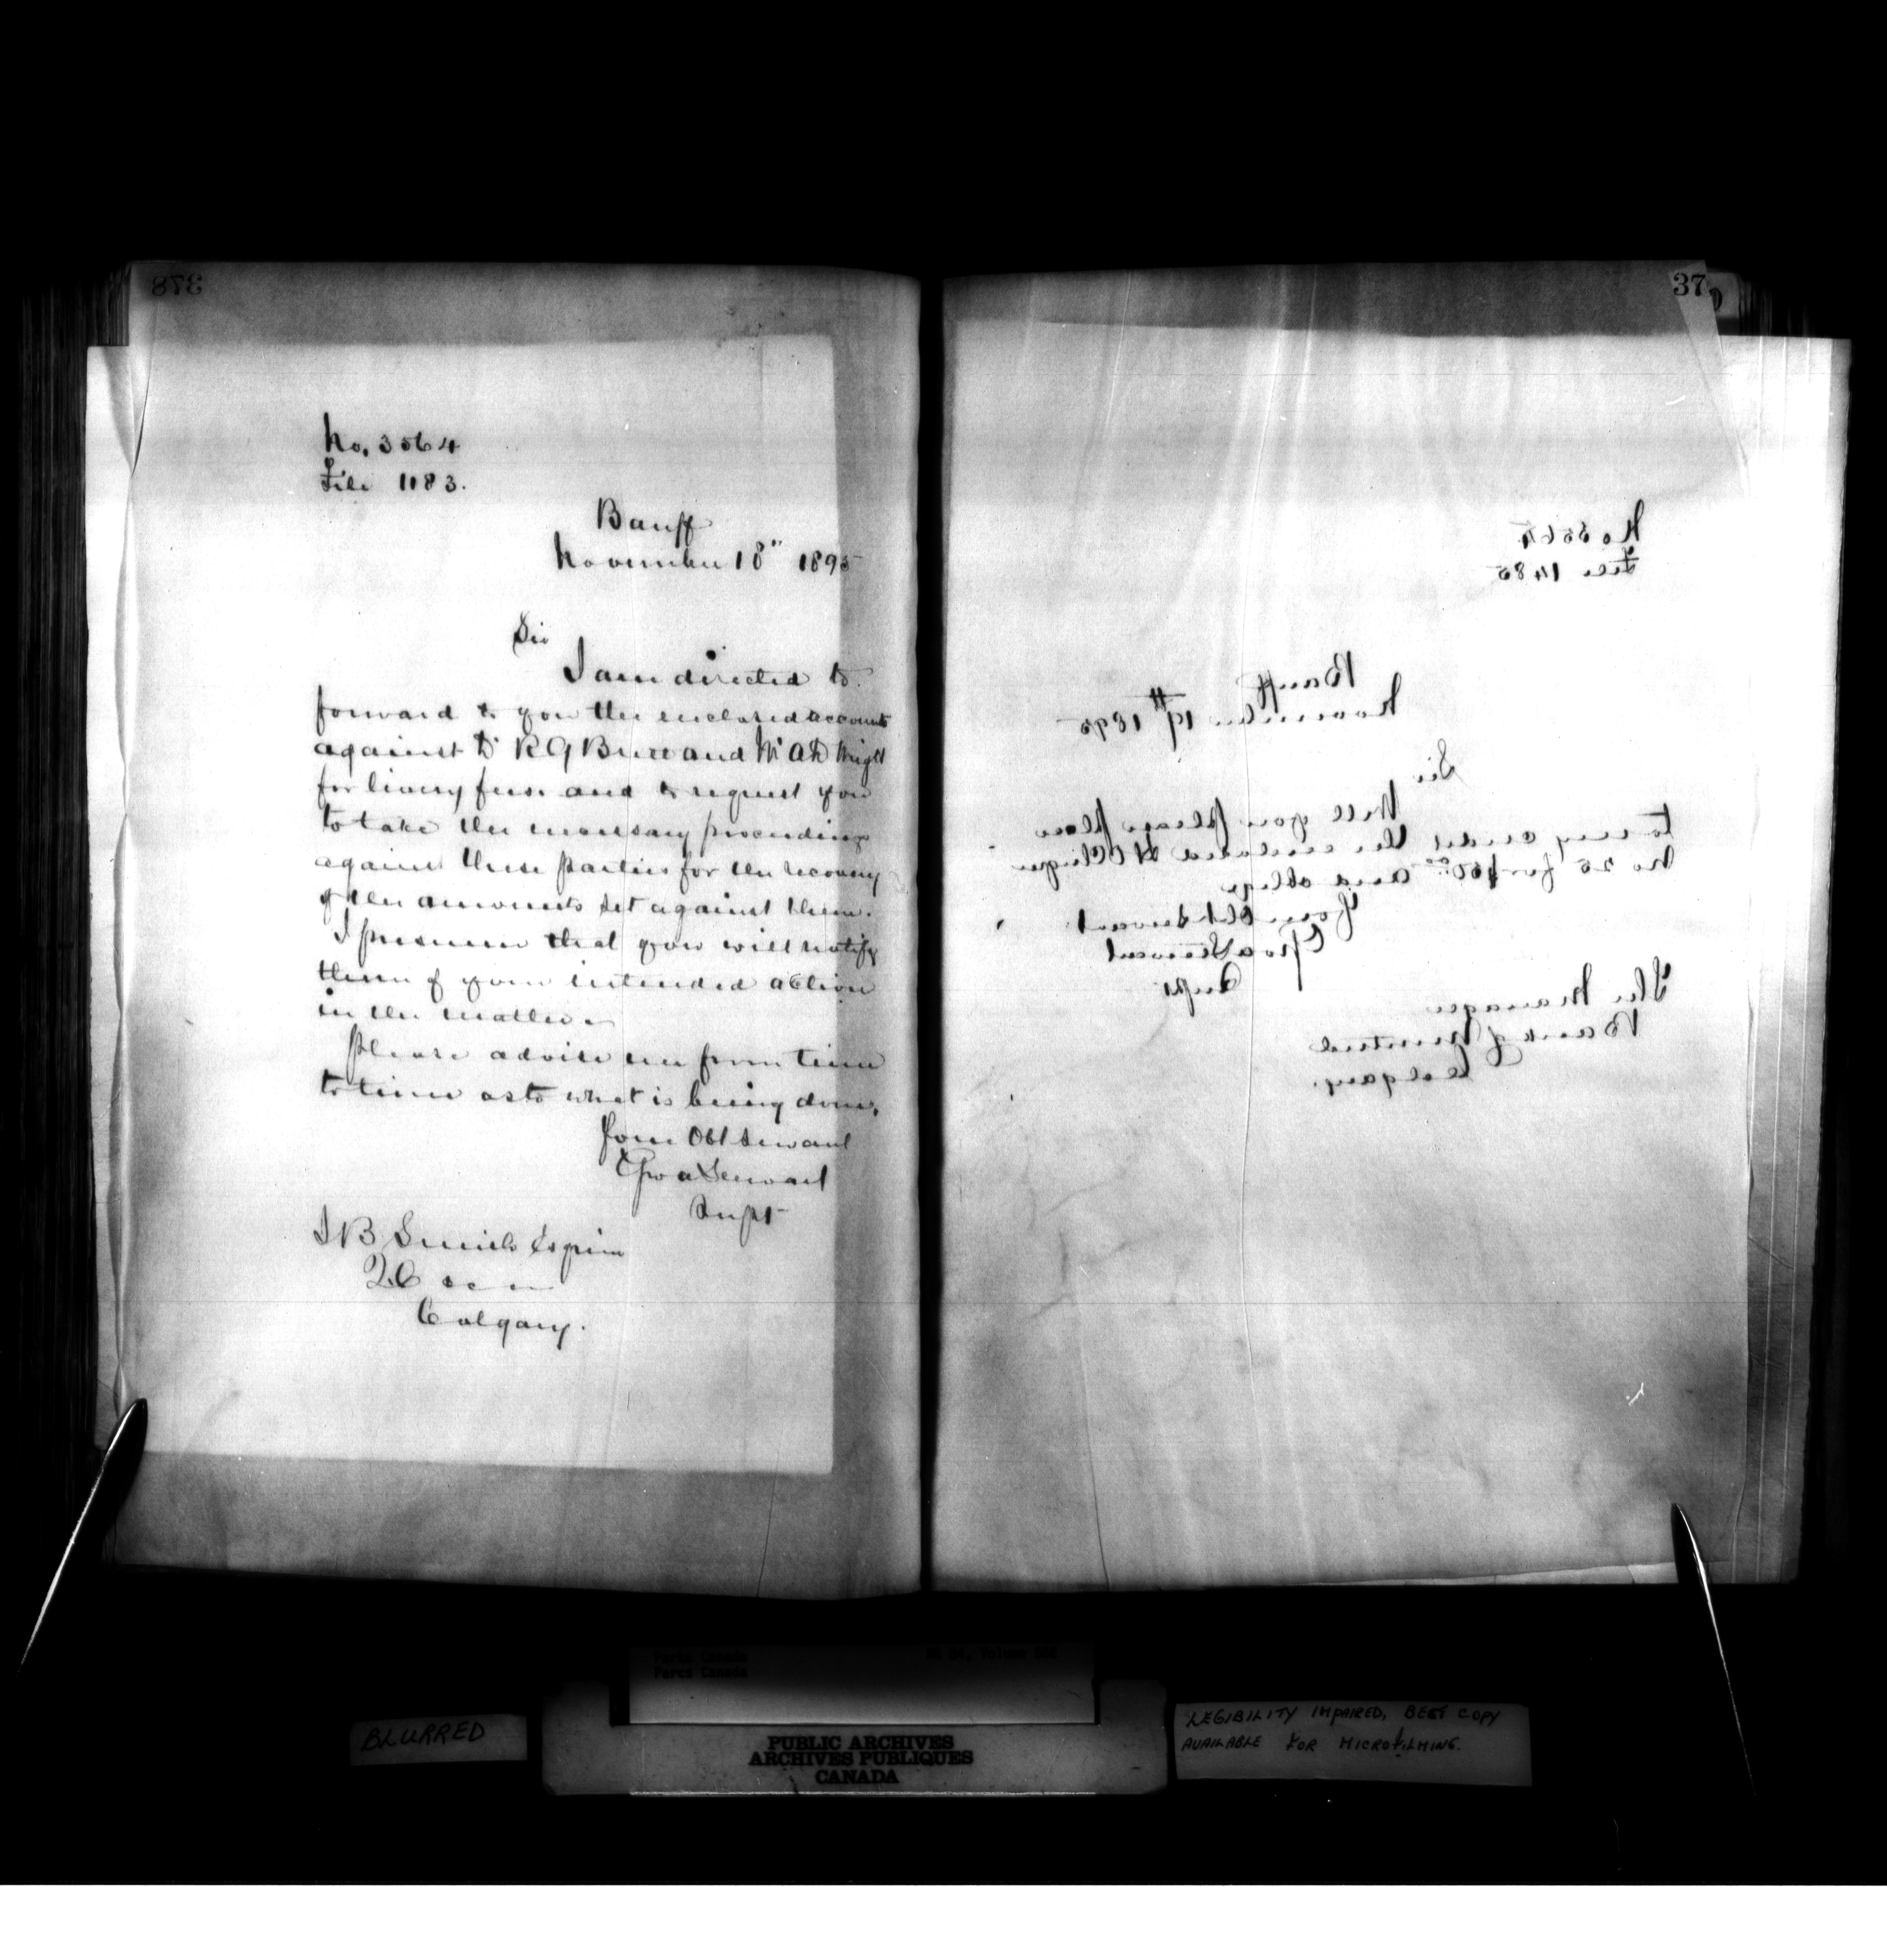 378
No. 3564
File 1183.
Banff
November 18" 1895
Sir
I am directed to
forward to you the enclosed accounts
against Dr R G Brett and Mr A D Wright
for livery fees. and to request you
to take the necessary proceedings
against these parties for the recovery
of the amounts set against them.
I presume that you will notify
them of your intended action
in the matter.
Please advise me from time
to time as to what is being done.
Your Obt Servant
Geo A Stewart
Supt
J B Smith Esquire
Q.C
Calgary.
37
No 3565
File 1485
Banff
November 19th 1895
Sir
Will you please place
to my credit the enclosed Cheque
No 25 for and oblige
Your Obt Servant
Geo A Stewart
Supt
The Manager
Bank of Montreal
Calgary.
Parks Canada
Parcs Canada
RG 84, Volume
BLURRED
PUBLIC ARCHIVES
ARCHIVES PUBLIQUES
CANADA
LEGIBILITY IMPAIRED, BEST COPY
AVAILABLE FOR MICROFILMING.